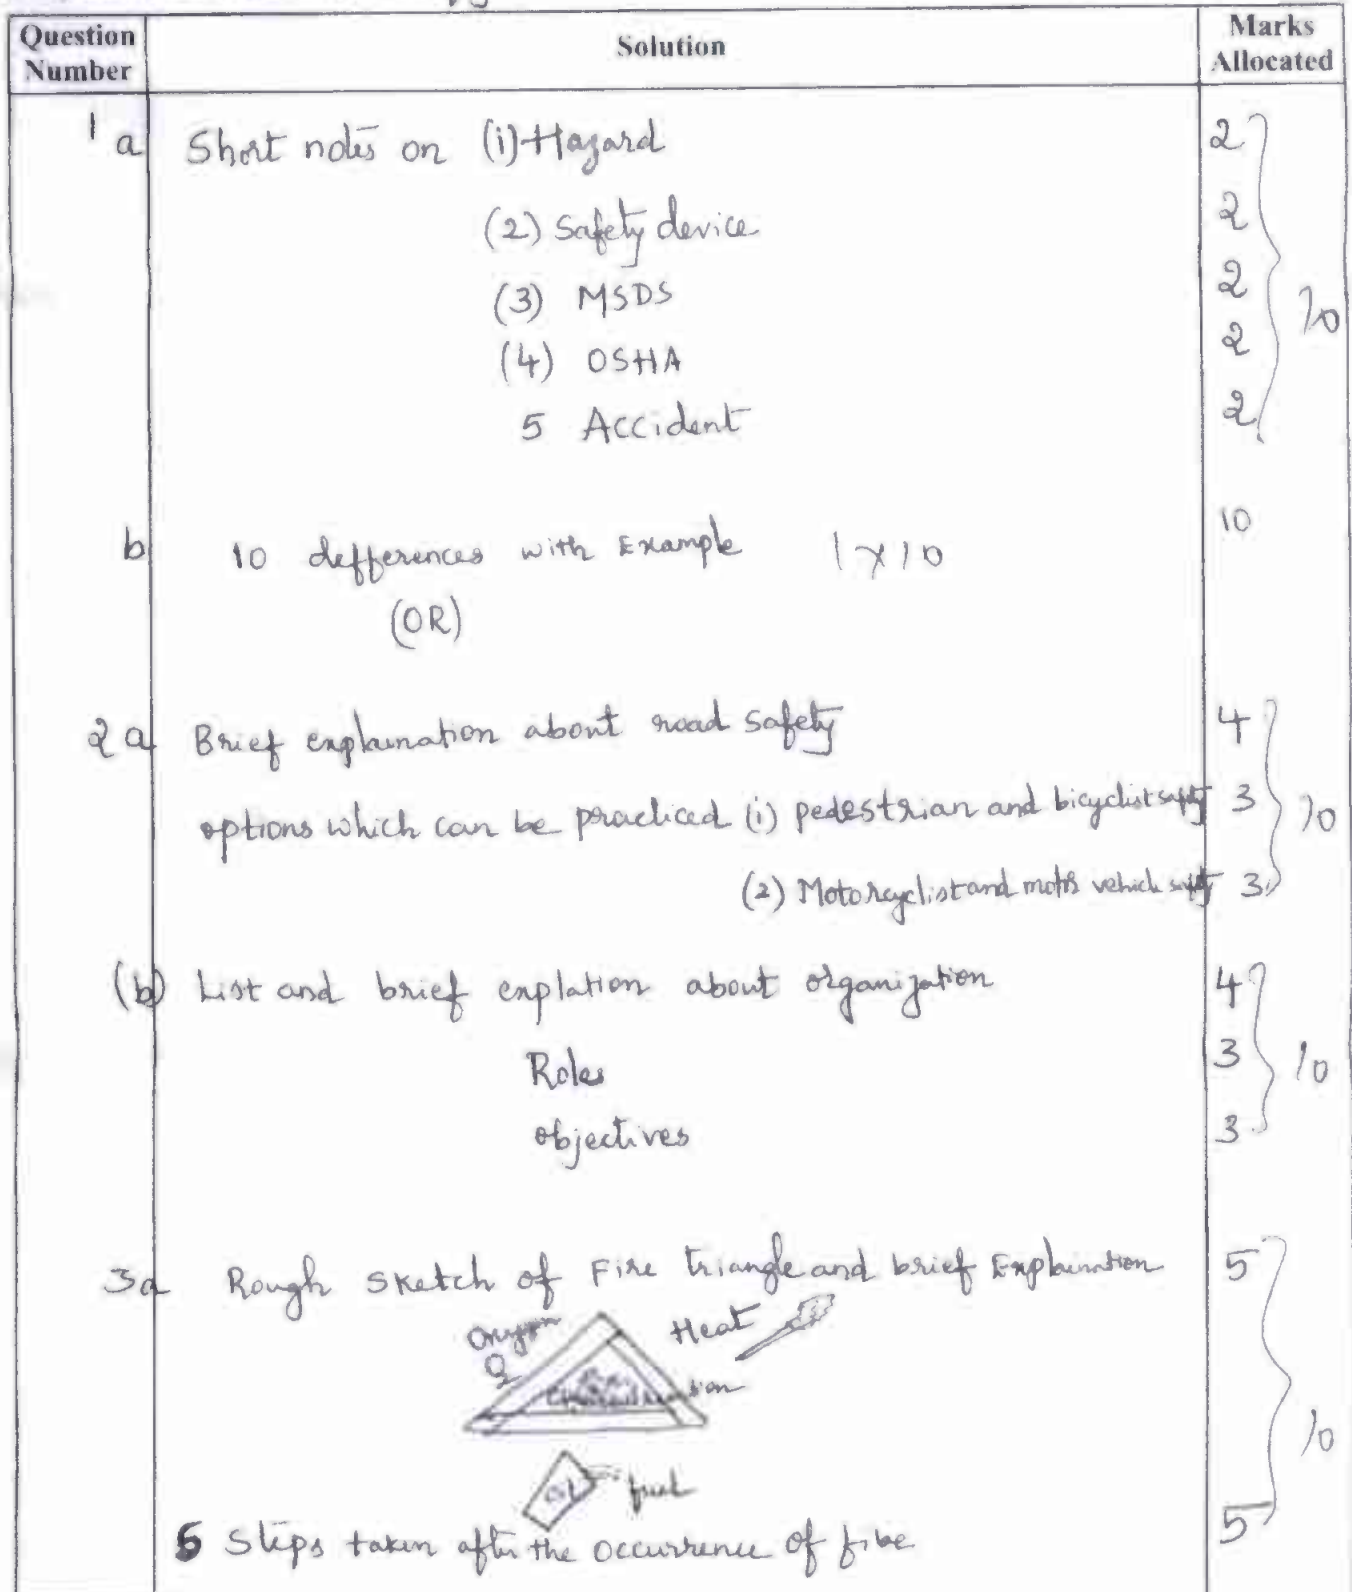 Question Number Solution Marks Allocated
1 a Short notes on (i) Hazard 2
(2) Safety device 2
(3) MSDS 2 10
(4) OSHA 2
5 Accident 2
b 10 defferences with Example 1 x 10 10
(OR)
2 a Brief explaination about road safety 4
options which can be practiced (i) pedestrian and bicyclist safety 3 10
(2) Motorcyclist and motor vehicle safety 3
(b) List and brief explation about organization 4
Roles 3 10
objectives 3
3a Rough Sketch of Fire triangle and brief Explaination 5
Oxygen Heat
O2
fuel
10
5 Steps taken after the occurrence of fire 5